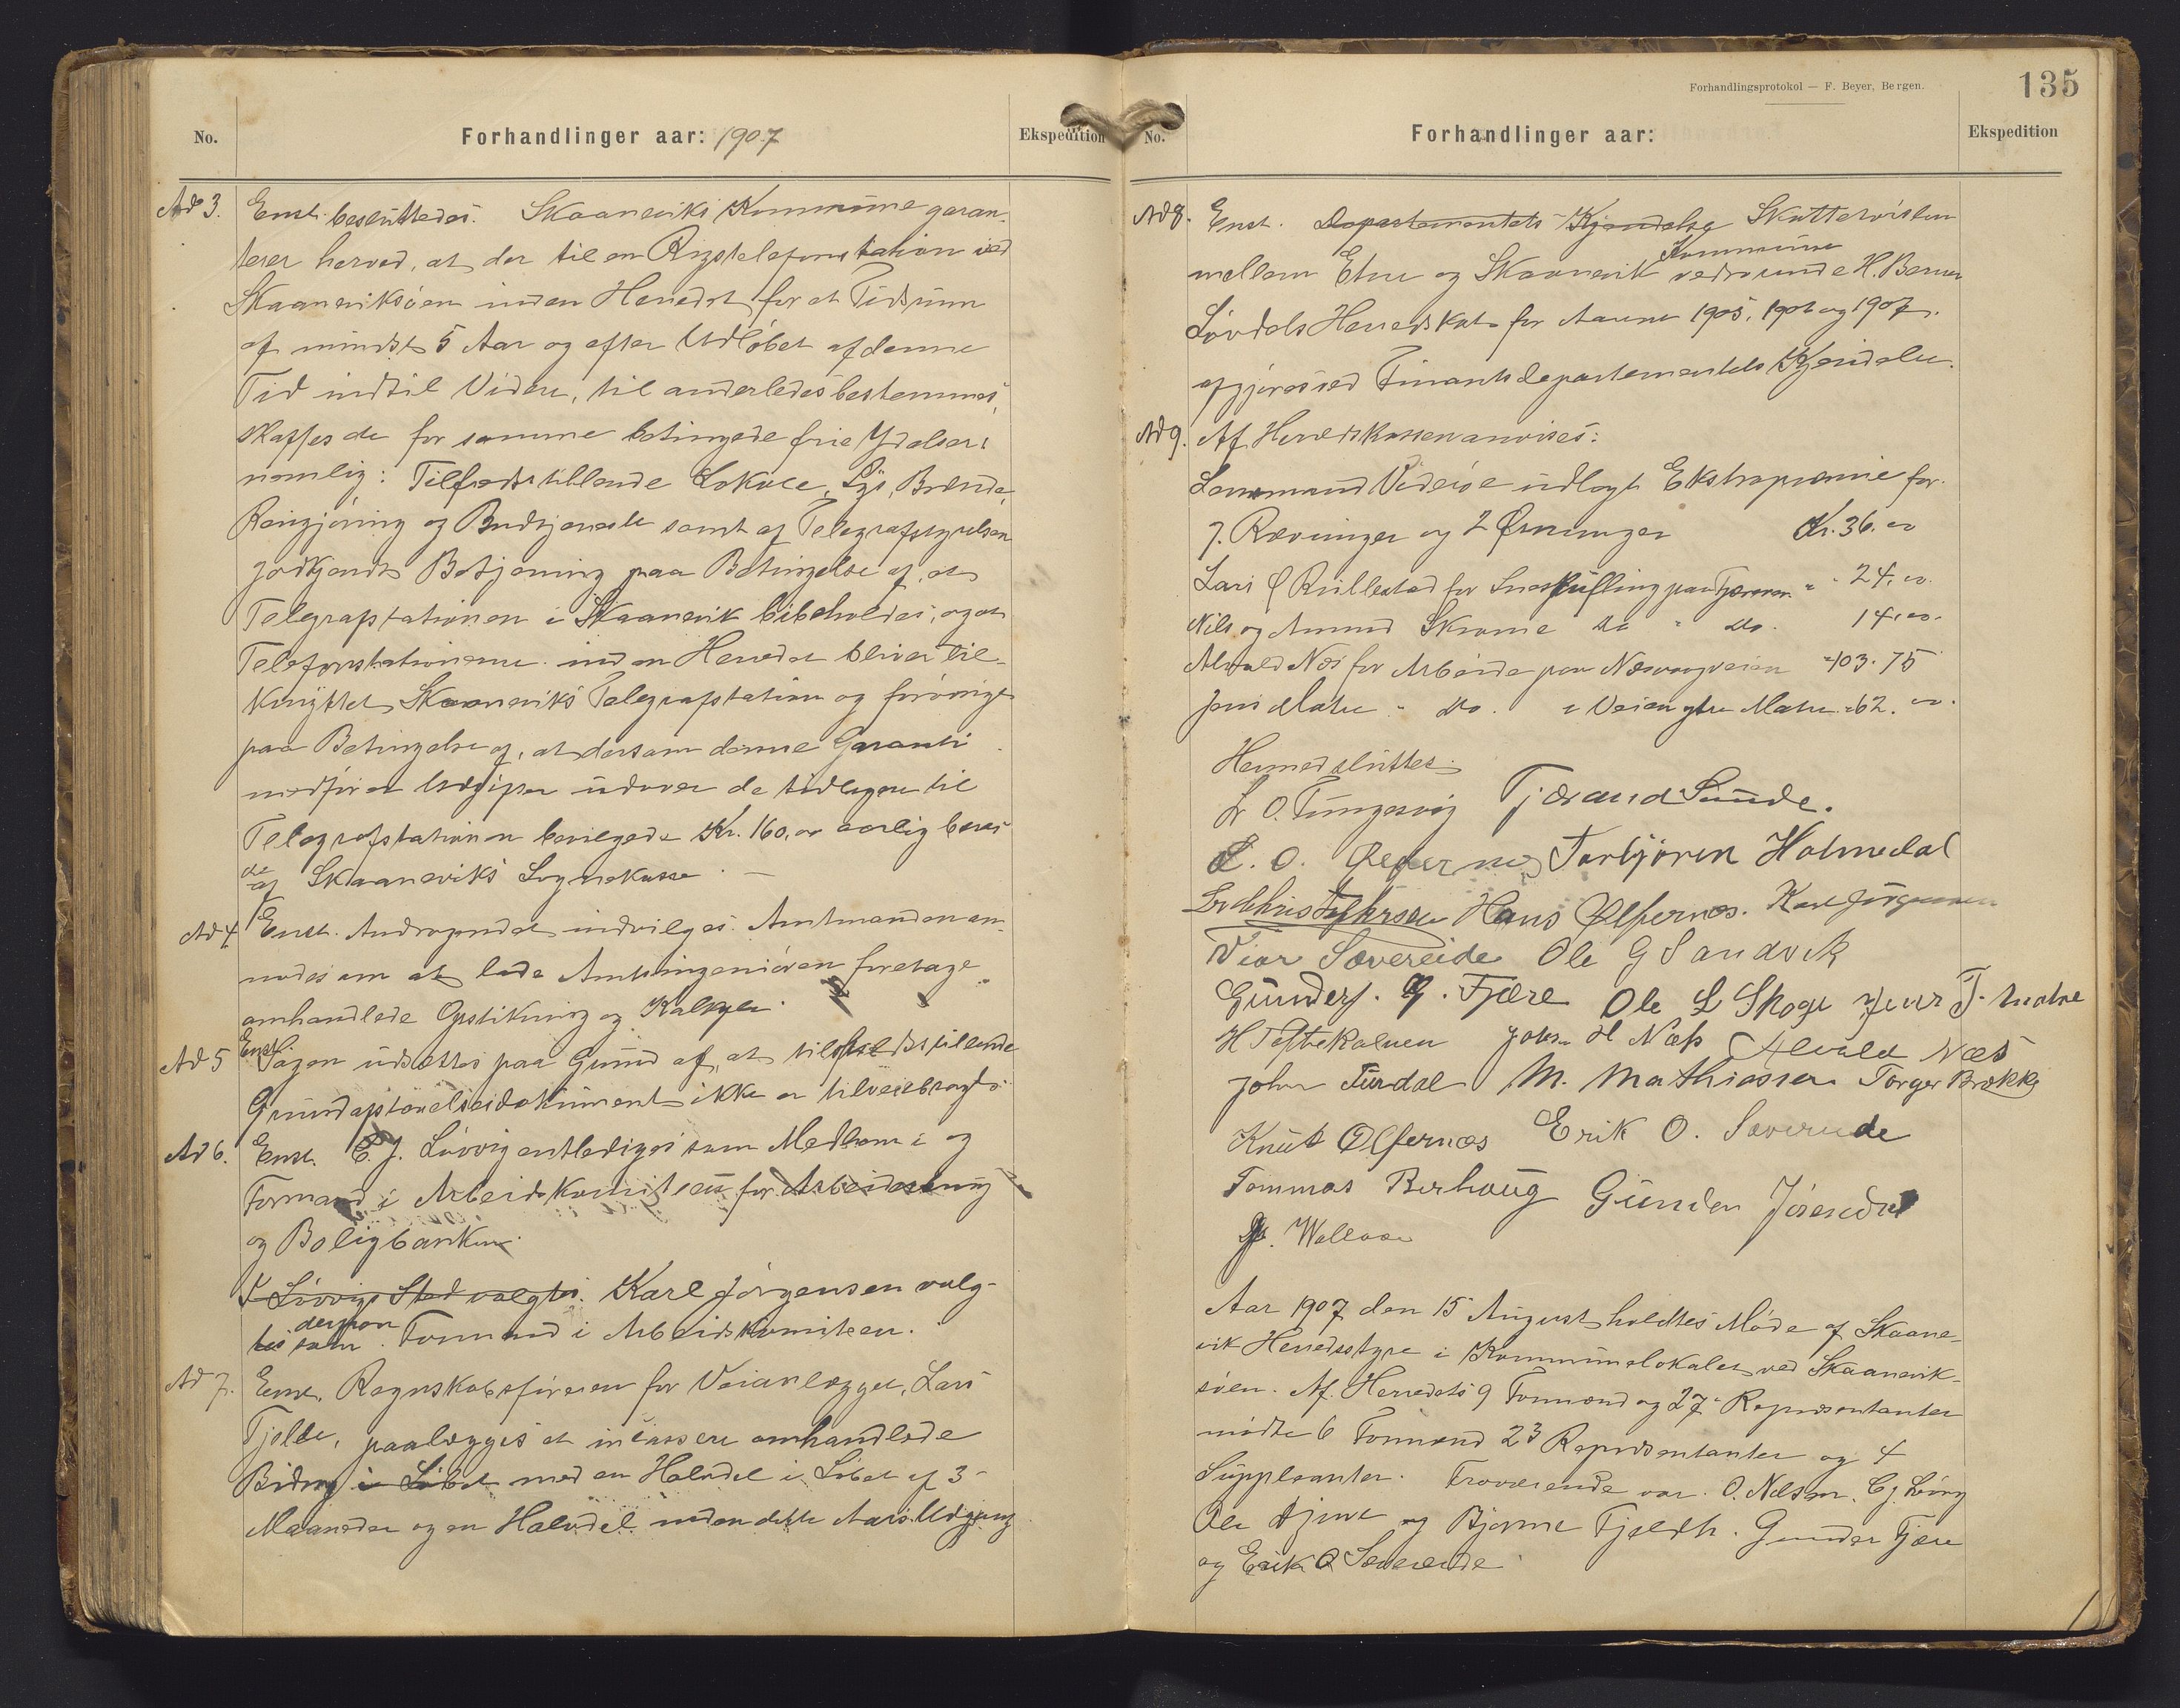 No. Forhandlinger aar: 1907 Ekspedition
Ad 3. Enst. besluttedes: Skaaneviks Kommune garan-
terer herved, at der til en Rigstelefonstation ved
Skaaneviksøen inden Herredet for et Tidsrum
af mindst 5 Aar og efter Udløbet af denne
Tid indtil Videre, til anderledes bestemmes,
skaffes de for samme betingede frie Ydelser:
nemlig: Tilfredsstillende Lokale, Lys, Brænde,
Rengjøring og Budtjeneste samt af Telegrafstyrelsen
godkjendt Betjening paa Betingelse af, at
Telegrafstationen i Skaanevik bibeholdes, og at
Telefonstationerne inden Herredet bliver til-
knyttet Skaaneviks Telegrafstation og forøvrigt
paa Betingelse af, at dersom denne Garanti
medfører Udgifter udover de tidligere til
Telegrafstationen bevilgede Kr. 160,00 aarlig bæres
de af Skaaneviks Sognekasse. —
Ad 4 Enst. Andragendet indvilges. Amtmanden an-
modes om at lade Amtsingeniøren foretage
omhandlede Opstikning og Kalkyle.
Ad 5 Enst. Sagen udsættes paa Grund af, at tilfredsstillende
Grundafstaaelsesdokument ikke er tilveiebragt.
Ad 6. Enst. C. J. Løvvig entlediges som Medlem i og
Formand i Arbeidskomiteen for Arbeiderbrug
og Boligbanken.
I Løvvigs Sted valgtes. Karl Jørgensen valg-
tes som derpaa Formand i Arbeidskomiteen.
Ad 7. Enst. Regnskabsføreren for Veianlægget, Lars
Fjelde, paalægges at incassere omhandlede
Bidrag i Løbet med en Halvdel i Løbet af 3
Maaneder og en Halvdel inden dette Aars Udgang
Forhandlingsprotokol — F. Beyer, Bergen.
135
No. Forhandlinger aar: Ekspedition
Ad 8. Enst. Departementets Kjendelse Skattetvisten
mellem Etne og Skaanevik Kommune vedrørende H. Berner
Løvdals Herredskat for Aarene 1905, 1906 og 1907
afgjøres ved Finantsdepartementets Kjendelse.
Ad 9. Af Herredskassen anvises:
Lensmand Viderøe udlagt Ekstrapræmie for
7. Ræveunger og 2 Ørneunger Kr. 36.00
Lars Ø Rullestad for Sneskufling paa " 24,00
Nils og Amund Skrome do " do. 14,00.
Alvald Næs for Arbeide paa Næsvaagveien " 103.75
Jens Matre " do. " Veien ytre Matre " 62.00.
Hermed sluttes.
L. O. Tungesvig Tjærand Sunde.
L. O. Ølfernes Torbjørn Holmedal
Hans Ølfernæs. Karl Jørgensen
Viar Sævereide Ole G Sandvik
Gunder J. G. Fjære Ole L Skoge Jens T. Matre
H Toftekalven John H Næss Alvald Næs
John Furdal M. Mathiassen Torger Brække
Knut Ølfernæs Erik O. Sævereide
Tommas Berhaug Gunder
Wallaae
Aar 1907 den 15 August holdtes Møde af Skaane-
vik Herredsstyre i Kommunelokalet ved Skaanevik-
søen. Af Herredets 9 Formænd og 27 Repræsentanter
mødte 6 Formænd 23 Repræsentanter og 4
Suppleanter. Fraværende var O. Næss C. J. Løvvig
Ole og Bjarne Fjeldh. Gunder Fjære
og Erik O Sævereide